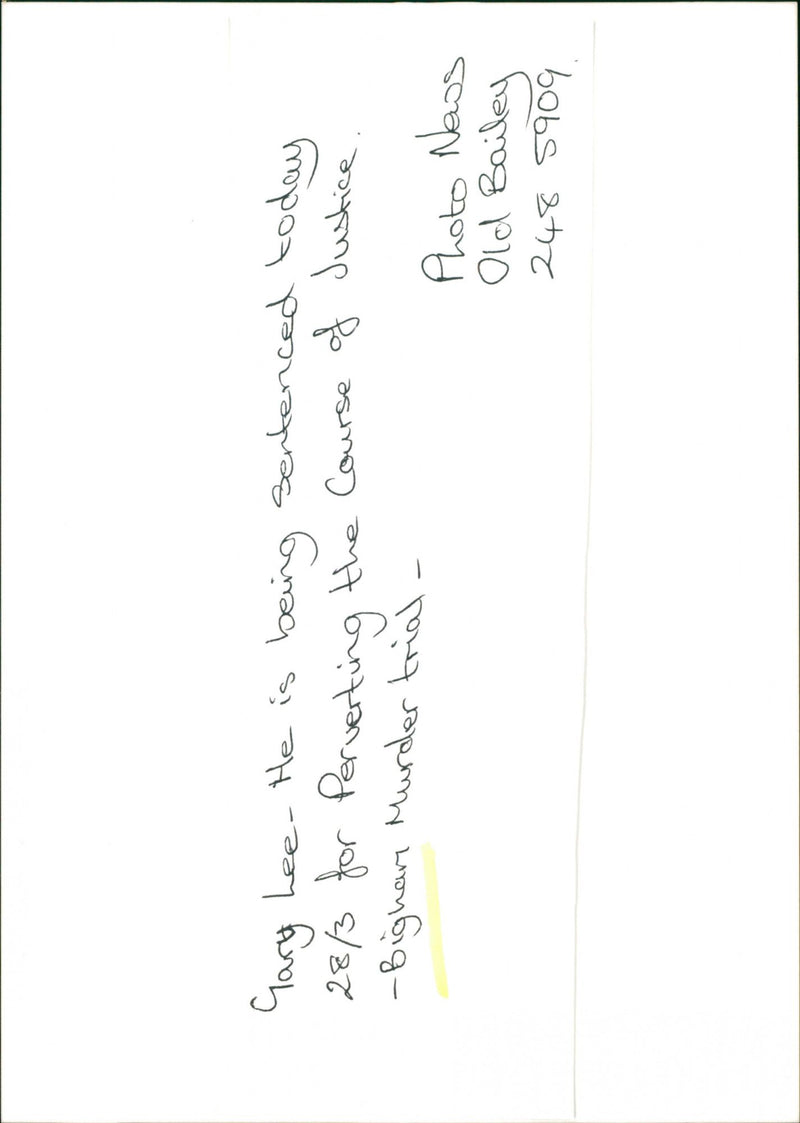 Gary Lee - He is being sentenced today
28/3 for Perverting the Course of Justice.
- Bigham Murder trial -
Photo News
Old Bailey
248 5909.